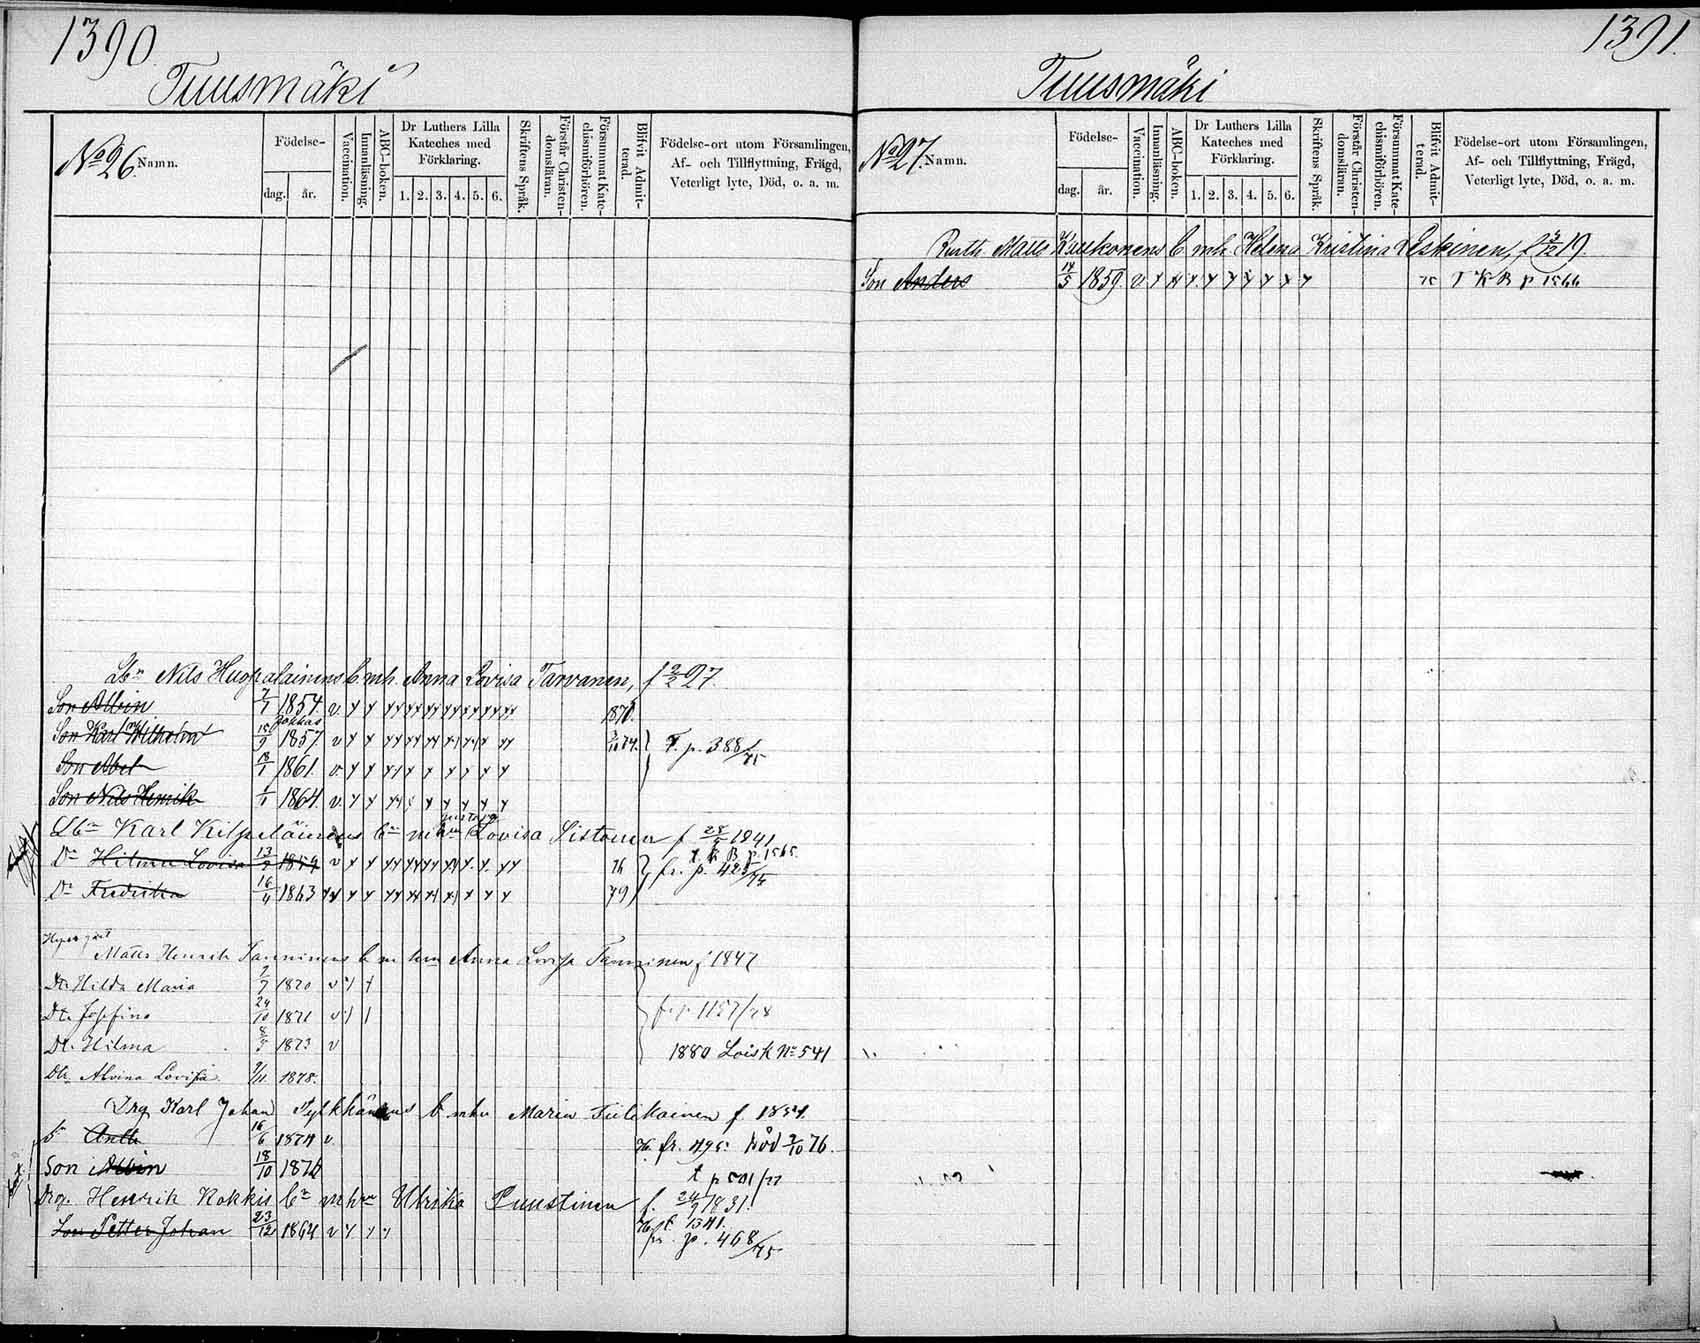 1390.
Tuusmäki
No 26. Namn.
Födelse-
dag. år.
Vaccination.
Innanläsning.
ABC-boken.
Dr Luthers Lilla
Kateches med
Förklaring.
1. 2. 3. 4. 5. 6.
Skriftens Språk.
Förstår Christen-
domsläran.
Försummat Kate-
chismiförhören.
Blifvit Admit-
terad.
Födelse-ort utom Församlingen,
Af- och Tillflyttning, Frägd,
Veterligt lyte, Död, o. a. m.
Nils b mh. Anna Lovisa Tarvanen, f 2/2 27.
Son Albin 7/1 1854. v
Son Karl Wilhelm 1857. v p. 388/75
Son Abel 1861. v
Son Nils Henrik 1/1 1864. v
Karl Kilpeläinens Lovisa Sistonen f 28/ 1841
t. K B p. 1565.
Dr Hilma Lovisa 13/ 1859 v 76 fr. p. 423/75
Dr Fredrika 16/4 1863 79
Matts Henrik Tanninens b m hm Anna Lovisa Tanninen f 1847
Dtr Hilda Maria 2/7 1870 v
Dtr Josefina 24/10 1871 v fr p 1157/78
Dtr Hilma 8/5 1873 v 1880 Loisk No 541
Dtr Alvina Lovisa 9/11 1878.
Drg Karl Johan b mhu Maria Tiilikainen f. 1854.
16/6 1874 v. fr. död 2/10 76.
Son Albin 18/10 1876 t p 501/77
Drg. Henrik Kokkis bn mhu Ulrika Puustinen f. 24/9 1831.
t 1341.
Son Petter Johan 23/12 1864 v fr. p. 468/75
1391.
Tuusmäki
No 27. Namn.
Födelse-
dag. år.
Vaccination.
Innanläsning.
ABC-boken.
Dr Luthers Lilla
Kateches med
Förklaring.
1. 2. 3. 4. 5. 6.
Skriftens Språk.
Förstår Christen-
domsläran.
Försummat Kate-
chismiförhören.
Blifvit Admit-
terad.
Födelse-ort utom Församlingen,
Af- och Tillflyttning, Frägd,
Veterligt lyte, Död, o. a. m.
Matts Kaukonens b mh Helena Kristina Leskinen, f 19.
Son Anders 14/5 1859. v 75 T K B p 1566